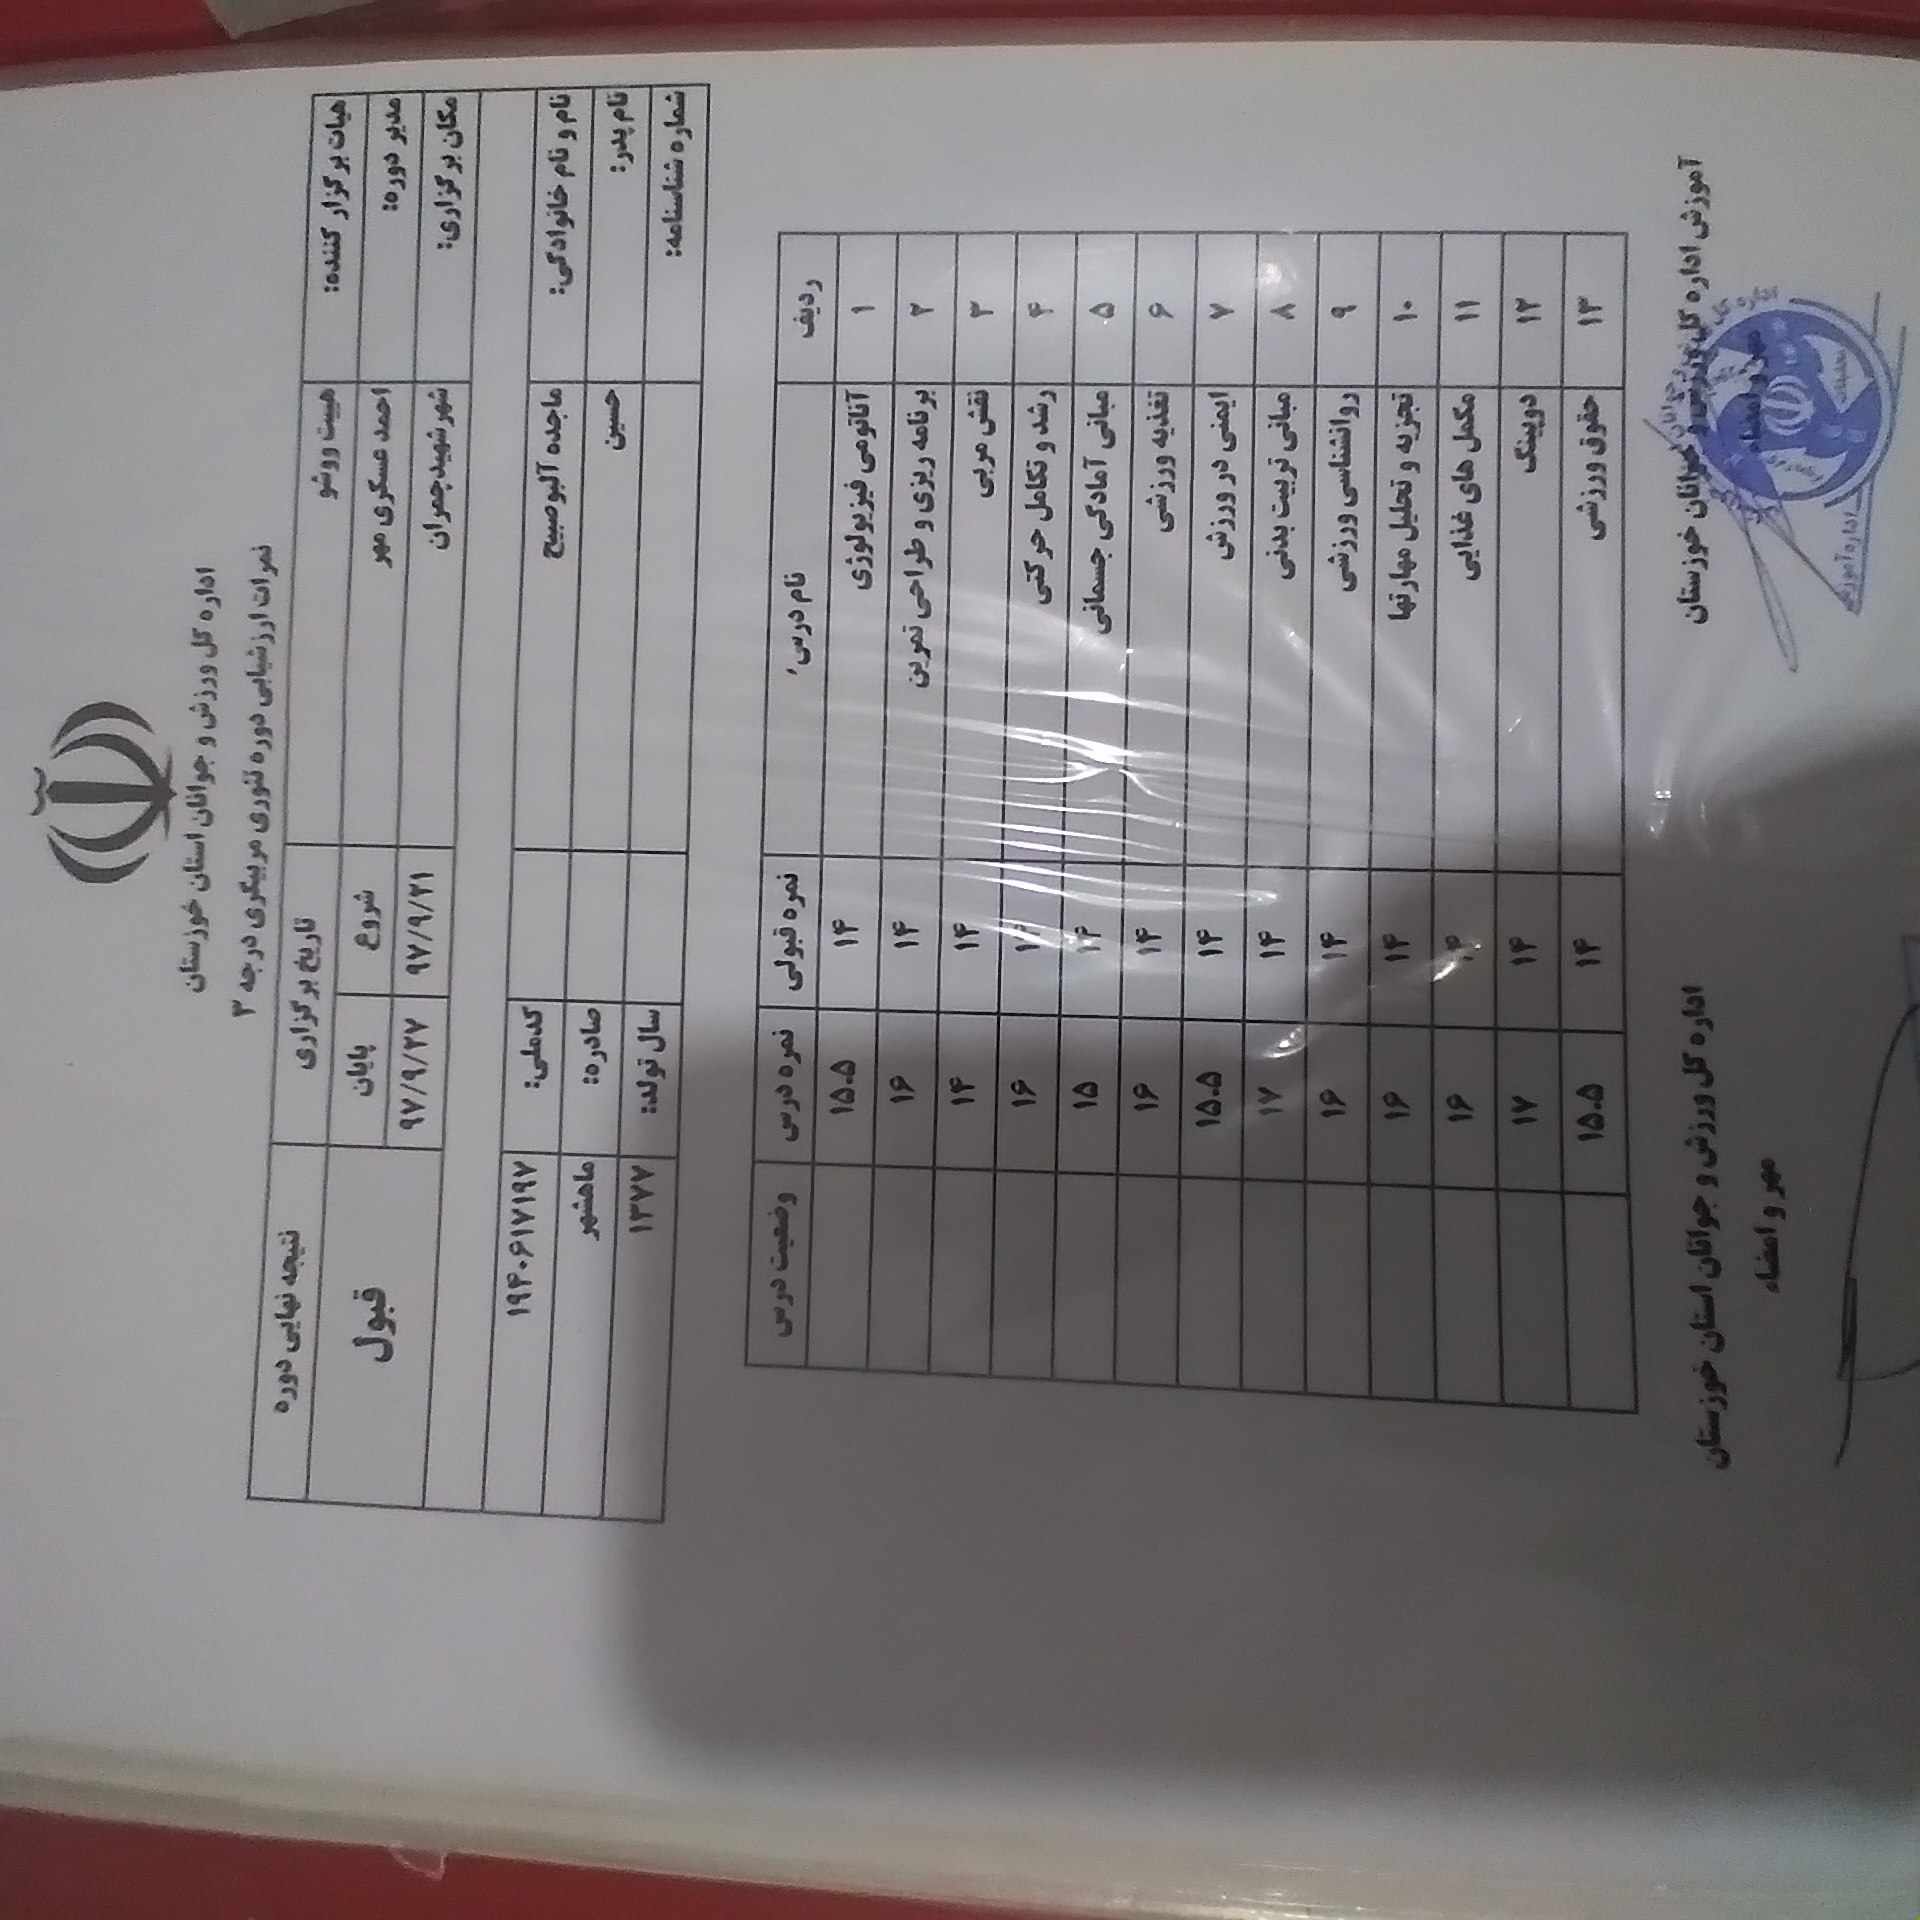 اداره کل ورزش و جوانان استان خوزستان
نمرات ارزشیابی دوره تئوری مربیگری درجه ۳
هیات برگزار کننده: هییت ووشو تاریخ برگزاری نتیجه نهایی دوره
مدیر دوره: احمد عسکری مهر شروع پایان قبول
مکان برگزاری: شهر شهیدچمران ۹۷/۹/۲۱ ۹۷/۹/۲۷
نام و نام خانوادگی: ماجده آلبوصبیح کدملی: ۱۹۴۰۶۱۷۱۹۷
نام پدر: حسین صادره: ماهشهر
شماره شناسنامه: سال تولد: ۱۳۷۷
ردیف نام درس نمره قبولی نمره درس وضعیت درس
۱ آناتومی فیزیولوژی ۱۴ ۱۵.۵
۲ برنامه ریزی و طراحی تمرین ۱۴ ۱۶
۳ نقش مربی ۱۴ ۱۴
۴ رشد و تکامل حرکتی ۱۴ ۱۶
۵ مبانی آمادگی جسمانی ۱۴ ۱۵
۶ تغذیه ورزشی ۱۴ ۱۶
۷ ایمنی در ورزش ۱۴ ۱۵.۵
۸ مبانی تربیت بدنی ۱۴ ۱۷
۹ روانشناسی ورزشی ۱۴ ۱۶
۱۰ تجزیه و تحلیل مهارتها ۱۴ ۱۶
۱۱ مکمل های غذایی ۱۴ ۱۶
۱۲ دوپینگ ۱۴ ۱۷
۱۳ حقوق ورزشی ۱۴ ۱۵.۵
آموزش اداره کل ورزش و جوانان خوزستان اداره کل ورزش و جوانان استان خوزستان
مهر و امضاء مهر و امضاء
اداره آموزش